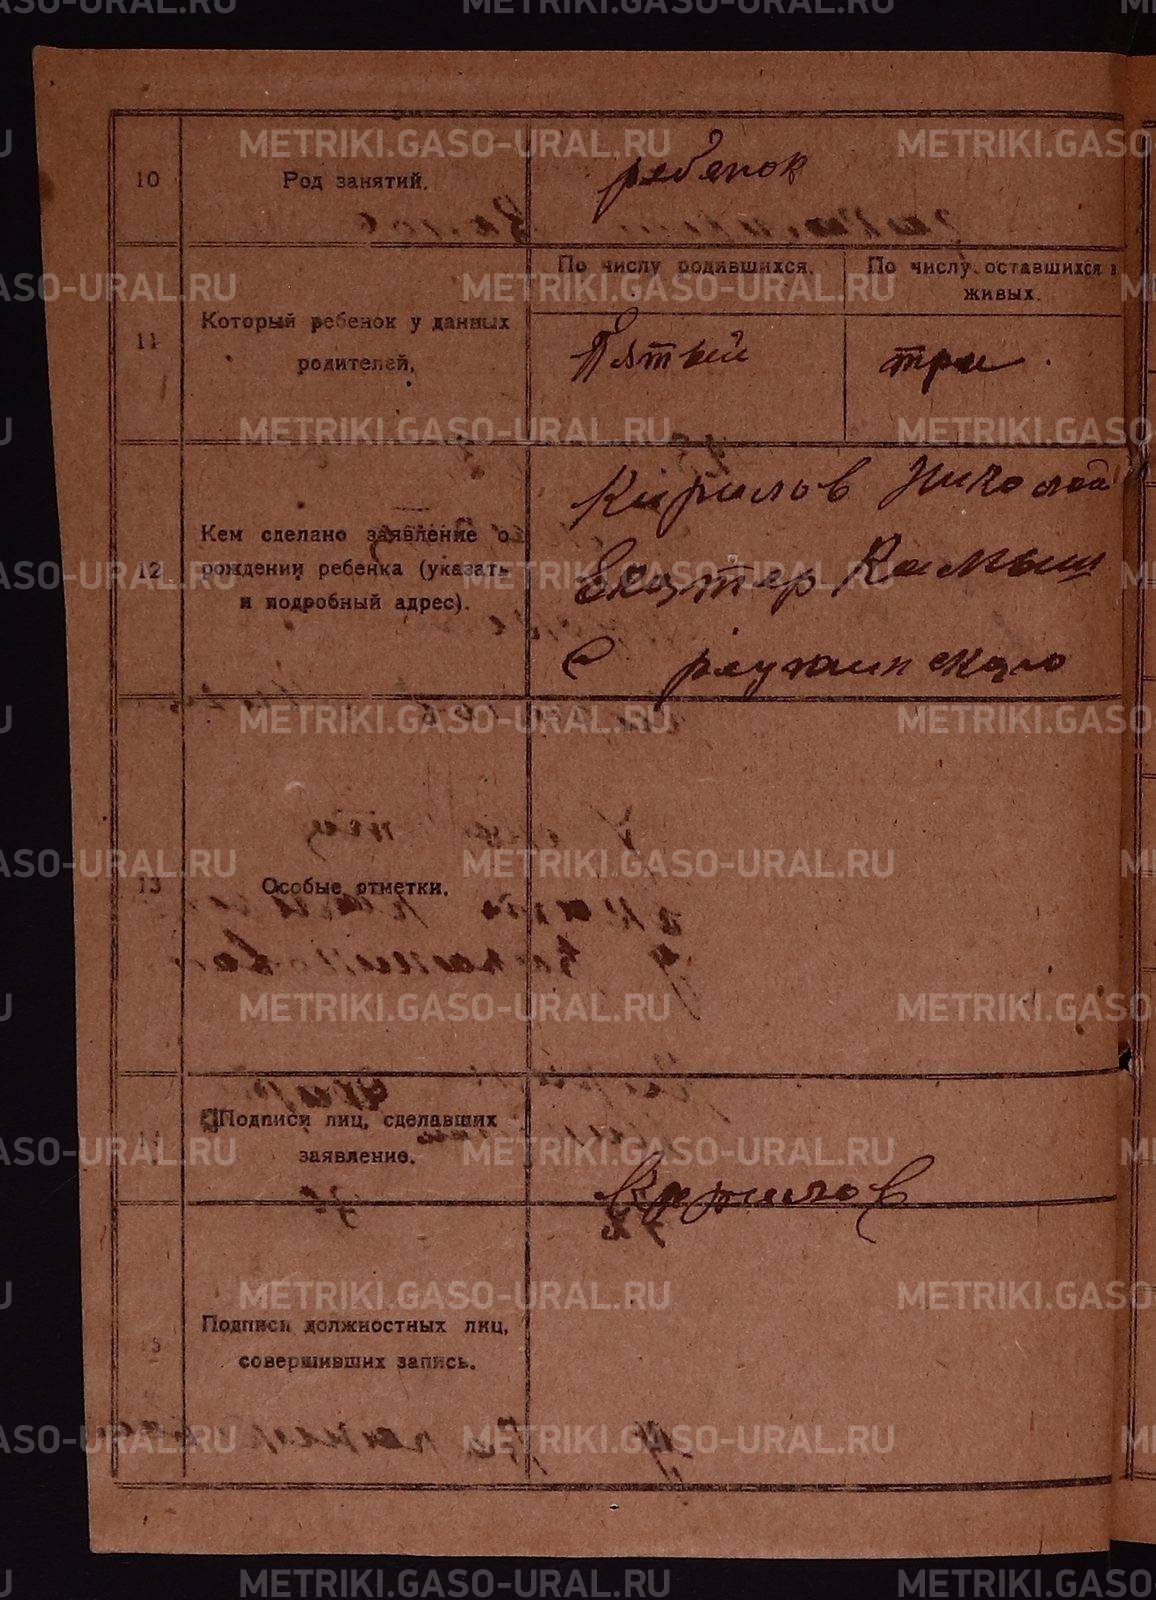 10
Род занятий.
ребенок
11
Который ребенок у данных
родителей.
По числу родившихся.
Пятый
По числу оставшихся в
живых.
три
12
Кем сделано заявление о
рождении ребенка (указать
и подробный адрес).
Кирилов Николай
Екатер Камыш
С
13
Особые отметки.
14
Подписи лиц, сделавших
заявление.
Кирилов
15
Подписи должностных лиц,
совершивших запись.
METRIKI.GASO-URAL.RU